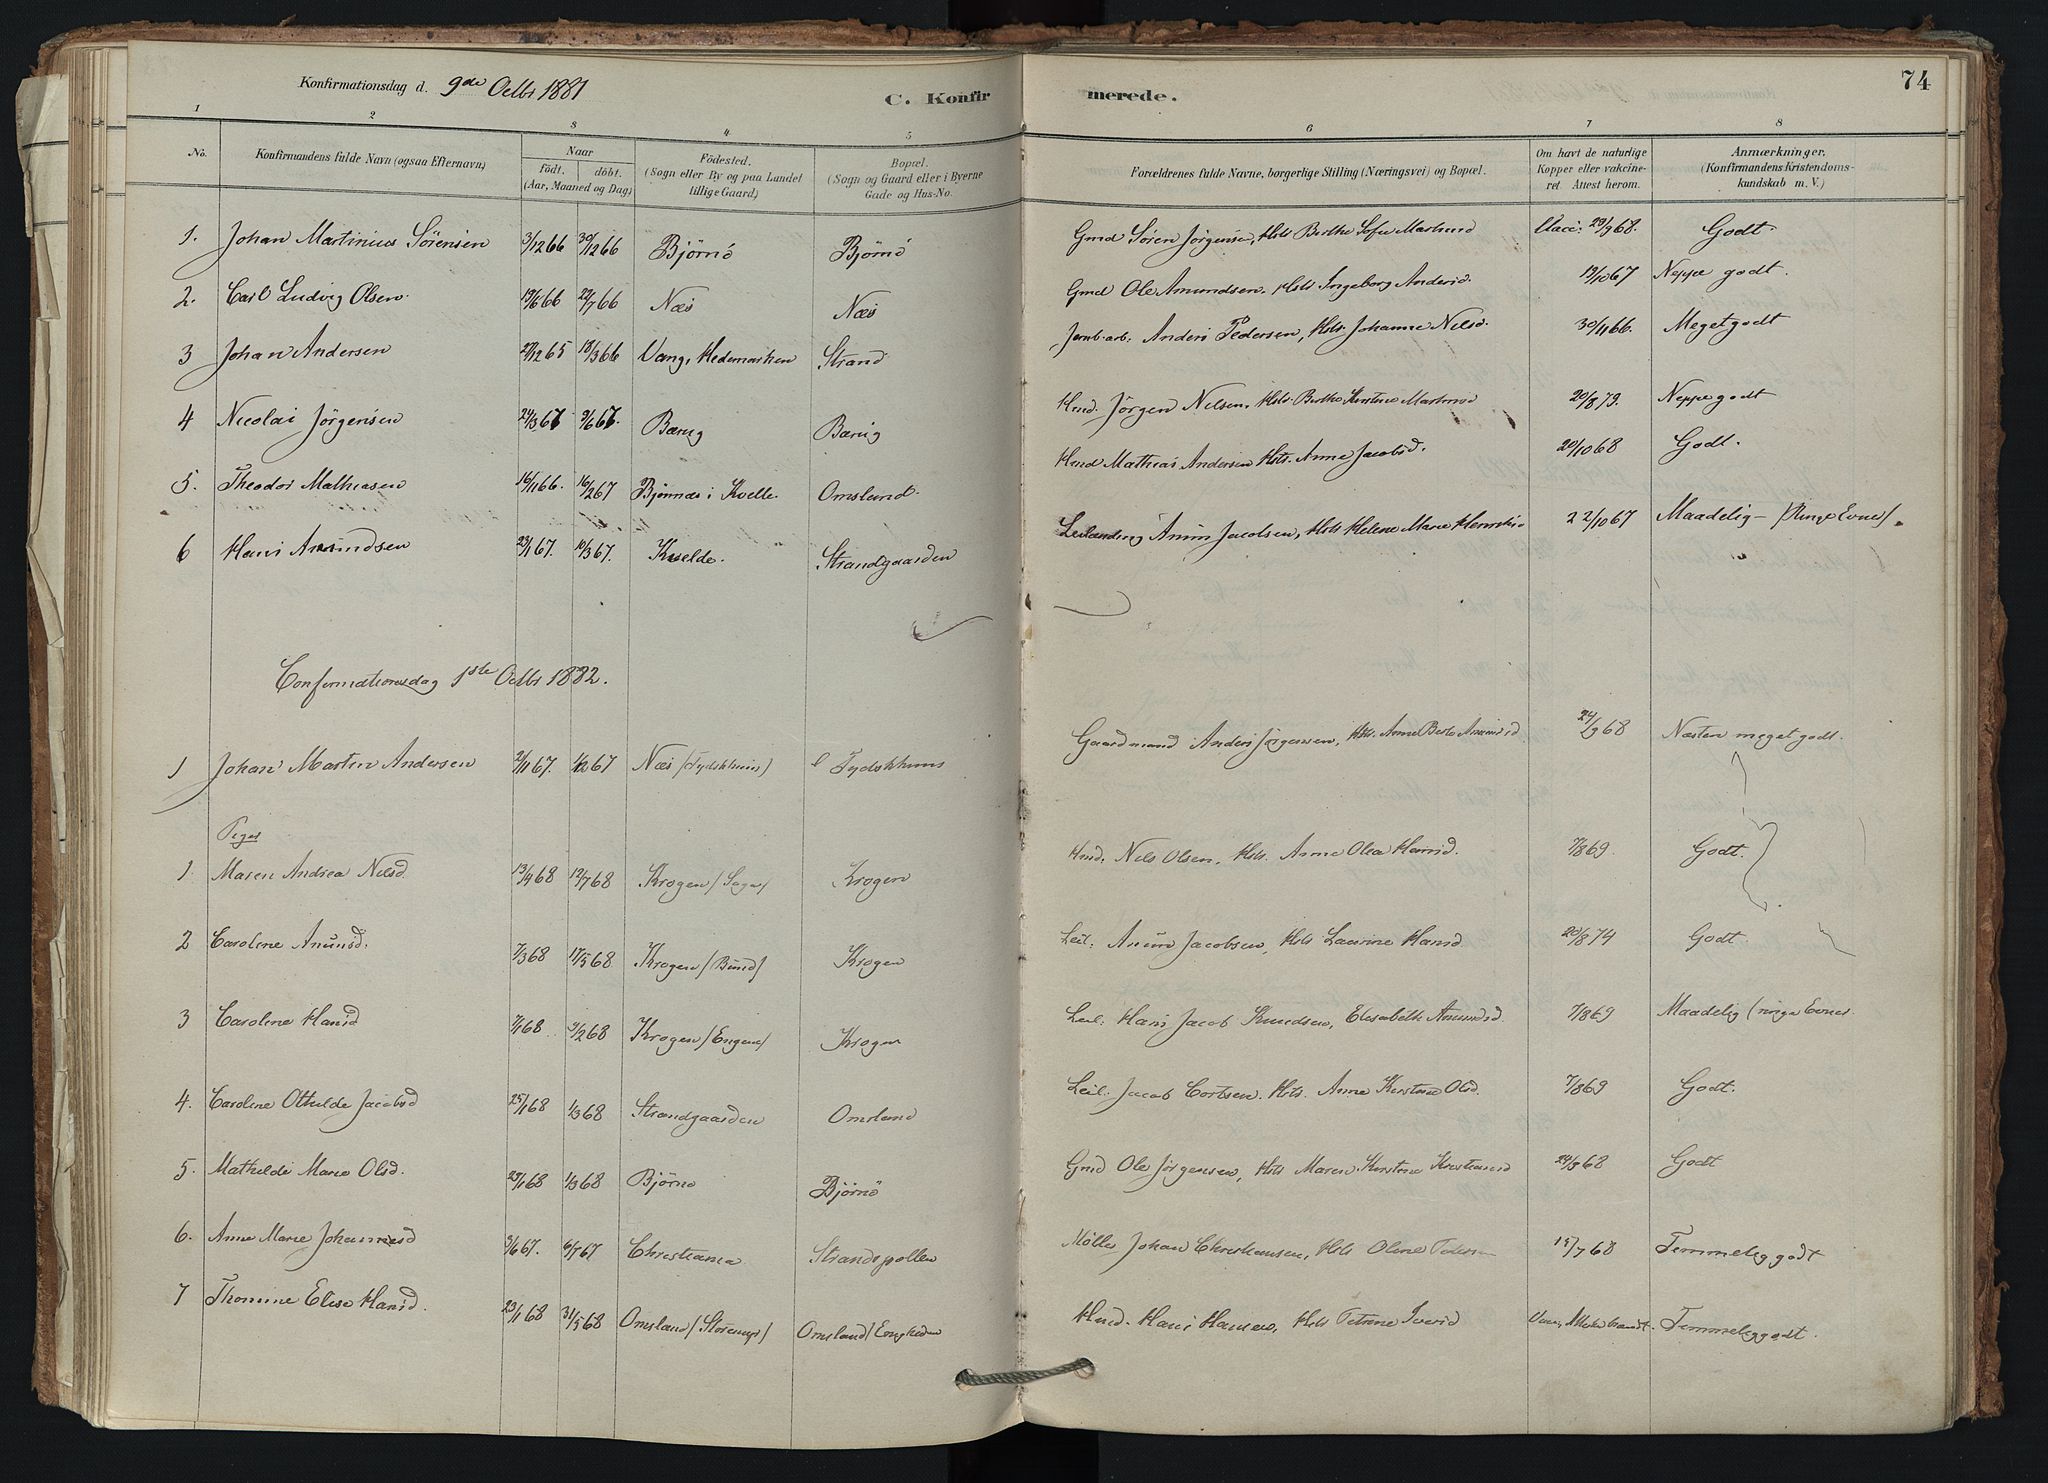 Konfirmationsdag d. 9de Octbr 1881
C. Konfirmerede.
74
1 2 3 4 5 6 7 8
No. Konfirmandens fulde Navn (ogsaa Efternavn) Naar födt. döbt. (Aar, Maaned og Dag) Födested. (Sogn eller By og paa Landet tillige Gaard) Bopæl. (Sogn og Gaard eller i Byerne Gade og Hus-No. Forældrenes fulde Navne, borgerlige Stilling (Næringsvei) og Bopæl. Om havt de naturlige Kopper eller vakcineret. Attest herom. Anmærkninger. (Konfirmandens Kristendomskundskab m. V.)
1. Johan Martinius Sörensen 3/12 66 30/12 66 Bjørnö Bjørnö Gmd Sören Jörgensen, Hstr Berthe Sofie Mathisd Vacc. 29/9 68. Godt.
2. Carl Ludvig Olsen. 19/6 66 22/7 66 Næs Næs Gmd Ole Amundsen. Hstr Ingeborg Andersd. 19/10 67 Neppe godt.
3 Johan Andersen 27/12 65 18/3 66 Vang, Hedemarken Strand Jernb.arb. Anders Pedersen, Hstr. Johanne Nilsd. 30/11 66. Meget godt
4 Nicolai Jörgensen 24/3 67 9/6 67. Bærug Bærug Hmd. Jörgen Nilsen, Hstr. Berthe Kirstine 20/8 79. Neppe godt
5. Theodor Mathiasen 16/11 66. 16/2 67 Bjönnes i Kvelle. Omsland. Hmd Mathias Andersen Hstr. Anne Jacobsd. 20/10 68 Godt.
6 Hans Anundsen 23/1 67. 10/3 67. Kvelde. Strandgaarden Leilænding Anun Jacobsen, Hstr Helene Marie Henriksd 22/10 67 Maadelig – (Ringe Evner).
Confirmationsdag 1ste Octbr 1882.
1 Johan Martin Andersen 2/11 67. 1/12 67 Næs (Tydskhuus) Tydskhuus Gaardmand Anders Jörgensen, Hstr. Anne Berte Anunsd 24/9 68 Næsten meget godt.
Piger
1 Maren Andrea Nilsd. 13/4 68 12/7 68 Krogen (Saga) Krogen Hmd. Nils Olsen, Hstr. Anne Olea Hansd. 7/8 69. Godt.
2 Caroline Anunsd. 7/3 68 17/5 68 Krogen (Bund) Krogen Leil. Anun Jacobsen, Hstr Laurine Hansd 20/8 74 Godt.
3 Caroline Hansd 7/1 68 9/2 68 Krogen (Engene) Krogen Leil: Hans Jacob Knudsen, Elisabeth Anundsd. 7/8 69 Maadelig (ringe Evner.
4. Caroline Othilde Jacobsd 25/1 68 1/3 68 Strandgaarden Omsland Leil: Jacob Corlsen. Hstr. Anne Kirstine Olsd. 7/8 69 Godt.
5. Mathilde Marie Olsd. 29/1 68 1/3 68 Bjørnö Bjørnö Gmd Ole Jörgensen, Hstr Maren Kirstine Kristiansd 24/9 68 Godt
6. Anne Marie Johannesd 9/6 67. 6/7 67 Christiania Strandspollen Möller Johan Christiansen, Hstr Oline 15/7 68 Temmelig godt
7 Thomine Elise Hansd. 23/1 68 31/5 68 Omsland (Storeng) Omsland (Engheden Hmd. Hans Hansen, Hstr Petrine Iversd Temmelig godt.